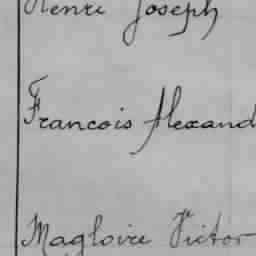 Henri Joseph
Francois Alexand
Magloire Victor